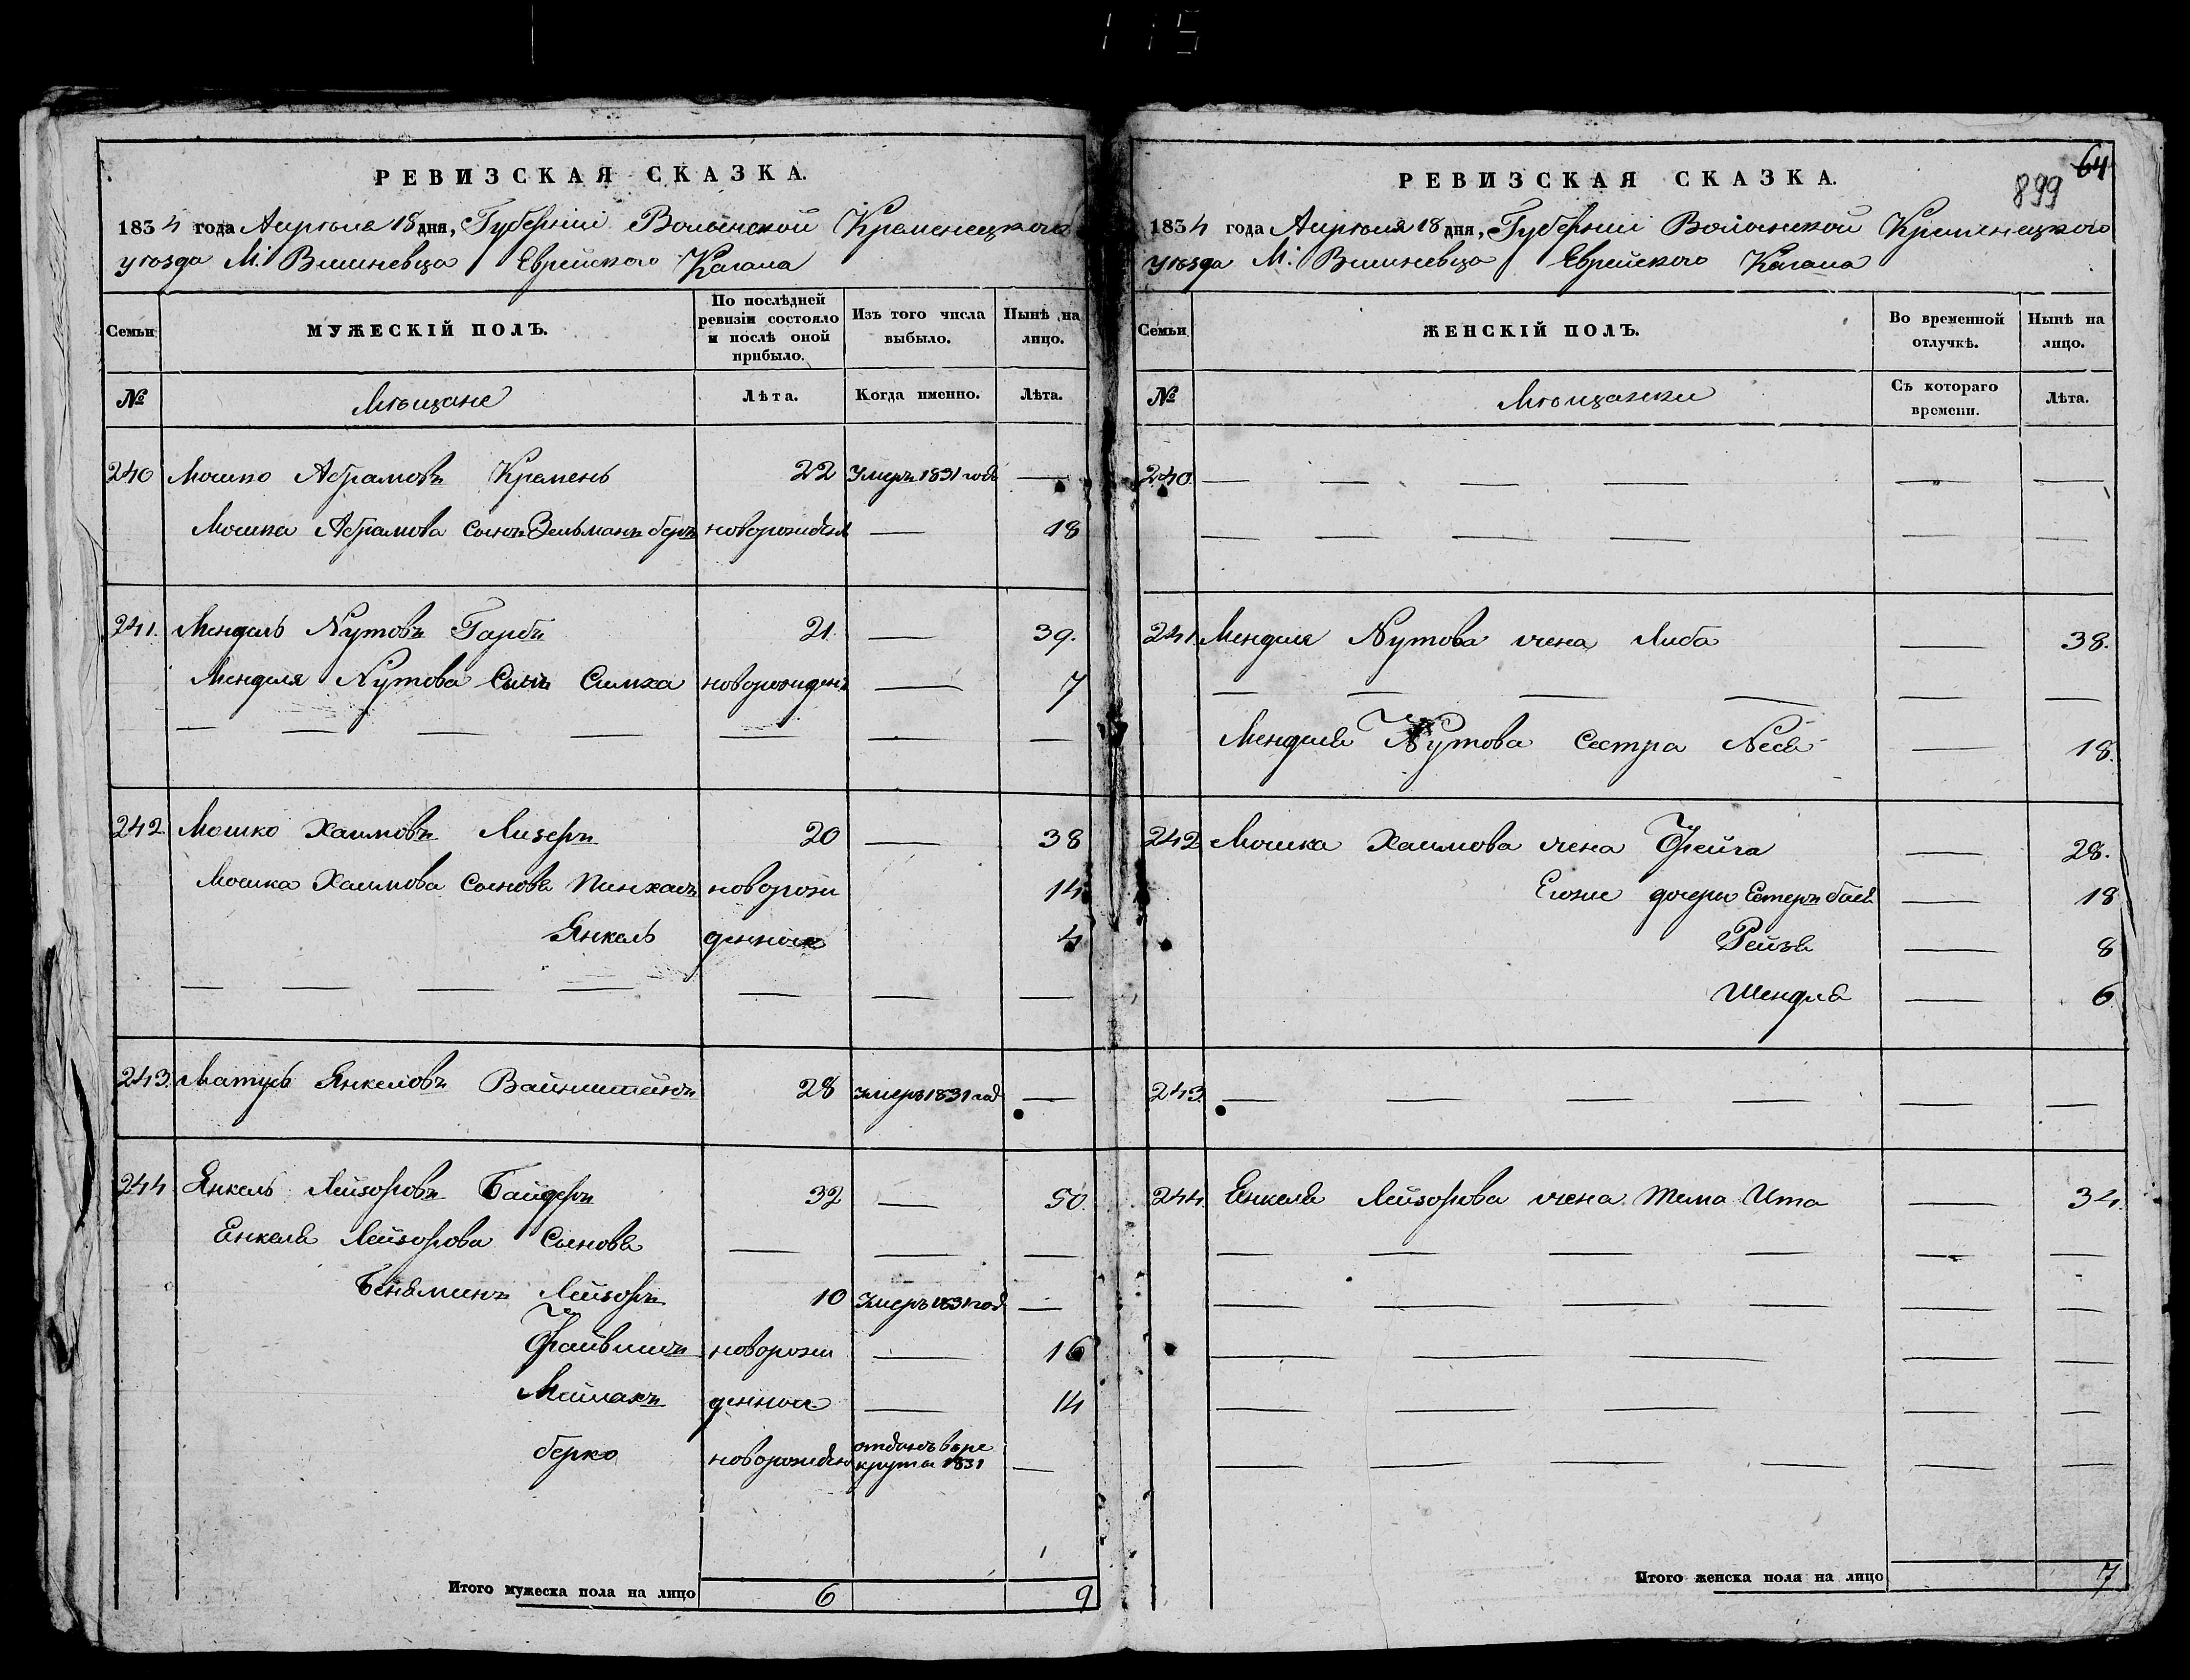 РЕВИЗСКАЯ СКАЗКА.
1834 года Апрѣля 18 дня, Губерніи Волынской Кременецкого
уѣзда М. Вишневца Еврейского Кагала
Семьи
МУЖЕСКІЙ ПОЛЪ.
По послѣдней ревизіи состояло и послѣ оной прибыло.
Изъ того числа выбыло.
Нынѣ на лицо.
№
Мѣщане
Лѣта.
Когда именно.
Лѣта.
240 Мошко Абрамовъ Кремень 22 Умеръ 1831 года —
Мошка Абрамова сынъ Зельманъ беръ новорожден — 18
241. Мендель Нутовъ Гарбъ 21. — 39.
Менделя Нутова Сынъ Симха новорожденъ — 7
— — — — — — —
242. Мошко Хаимовъ Лизеръ 20 — 38
Мошка Хаимова Сыновя Пинхасъ новорож 14
Янкель денные 4
— — — — — — —
243. Матусь Янкеловъ Вайнштейнъ 28 Умеръ 1831 год —
244 Янкель Лейзоровъ Байдеръ 32 — 50.
Енкеля Лейзорова Сыновя — — —
Беняминъ Лейзоръ 10 Умеръ 1831 год —
Файвишъ новорож — 16
Мейлахъ денные — 14
берко новорожден отданъ въ ре
круты 1831 —
Итого мужеска пола на лицо 6 9
64
899
РЕВИЗСКАЯ СКАЗКА.
1834 года Апрѣля 18 дня, Губерніи Волынской Кременецкого
уѣзда М. Вишневца Еврейского Кагала
Семьи
ЖЕНСКІЙ ПОЛЪ.
Во временной отлучкѣ.
Нынѣ на лицо.
№
Мѣщанки
Съ котораго времени.
Лѣта.
240. — — — — — —
— — — — — —
241. Менделя Нутова жена Либа — 38.
— — — — — —
Менделя Нутова Сестра Неся — 18.
242 Мошка Хаимова жена Фейга — 28.
Егоже дочери Естеръ бася — 18
Рейзя — 8
Шендля — 6
243. — — — — — —
244. Енкеля Лейзорова жена Тема Ита — 34.
— — — — — —
— — — — — —
— — — — —
— — — — —
— — — — — —
Итого женска пола на лицо 7